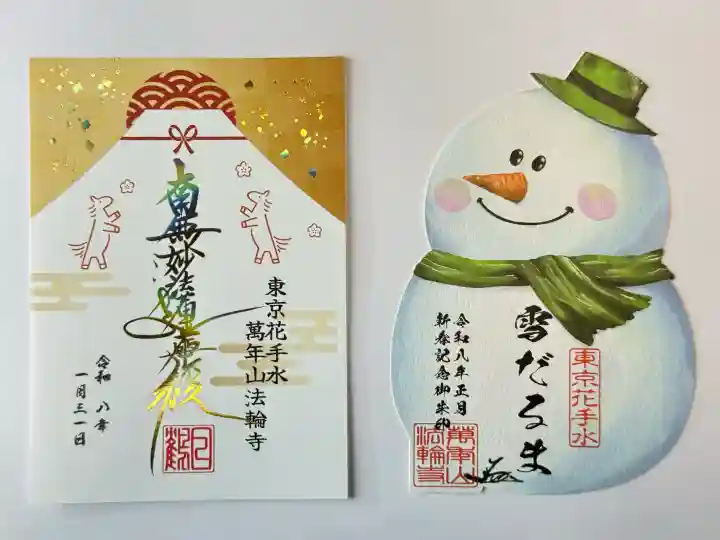 東京花手水
萬年山法輪寺
南無妙法蓮華経
令和八年
一月三一日
雪だるま
東京花手水
令和八年正月
新春記念御朱印
萬年山
法輪寺